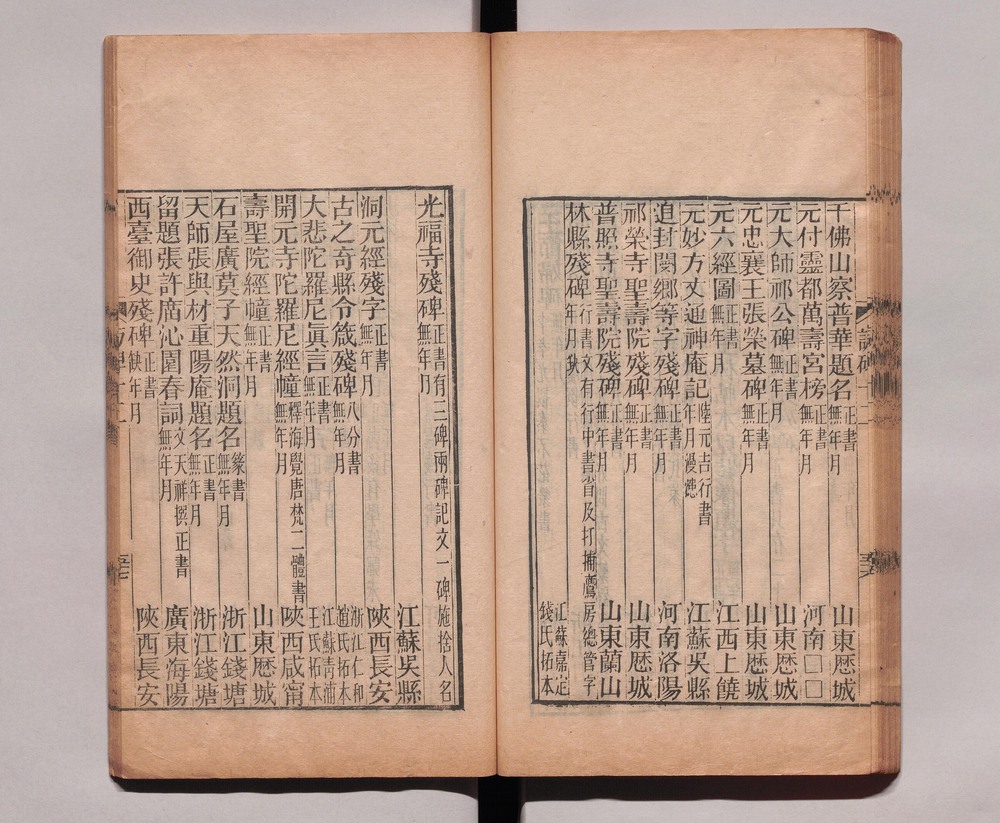 千佛山察普華題名正書無年月 山東歷城
元付靈都萬壽宮榜正書無年月 河南□□
元大師祁公碑正書無年月 山東歷城
元忠襄王張榮墓碑正書無年月 山東歷城
元六經圖正書無年月 江西上饒
元妙方丈通神庵記陸元吉行書年月漫漶 江蘇吳縣
追封閿鄉等字殘碑正書無年月 河南洛陽
祁榮寺聖壽院殘碑正書無年月 山東歷城
普照寺聖壽院殘碑正書無年月 山東蘭山
林縣殘碑行書文有行中書省及打捕鷹房總管字年月缺 江蘇嘉定錢氏拓本
光福寺殘碑正書有三碑兩碑記文一碑施捨人名無年月
江蘇吳縣
洞元經殘字正書無年月 陝西長安
古之奇縣令箴殘碑八分書無年月 浙江仁和趙氏拓本
大悲陀羅尼眞言正書無年月 江蘇青浦王氏拓本
開元寺陀羅尼經幢釋海覺唐梵二體書無年月 陝西咸甯
壽聖院經幢正書無年月 山東歷城
石屋廣莫子天然洞題名篆書無年月 浙江錢塘
天師張與材重陽庵題名正書無年月 浙江錢塘
留題張許廟沁園春詞文天祥撰正書無年月 廣東海陽
西臺御史殘碑正書缺年月 陝西長安